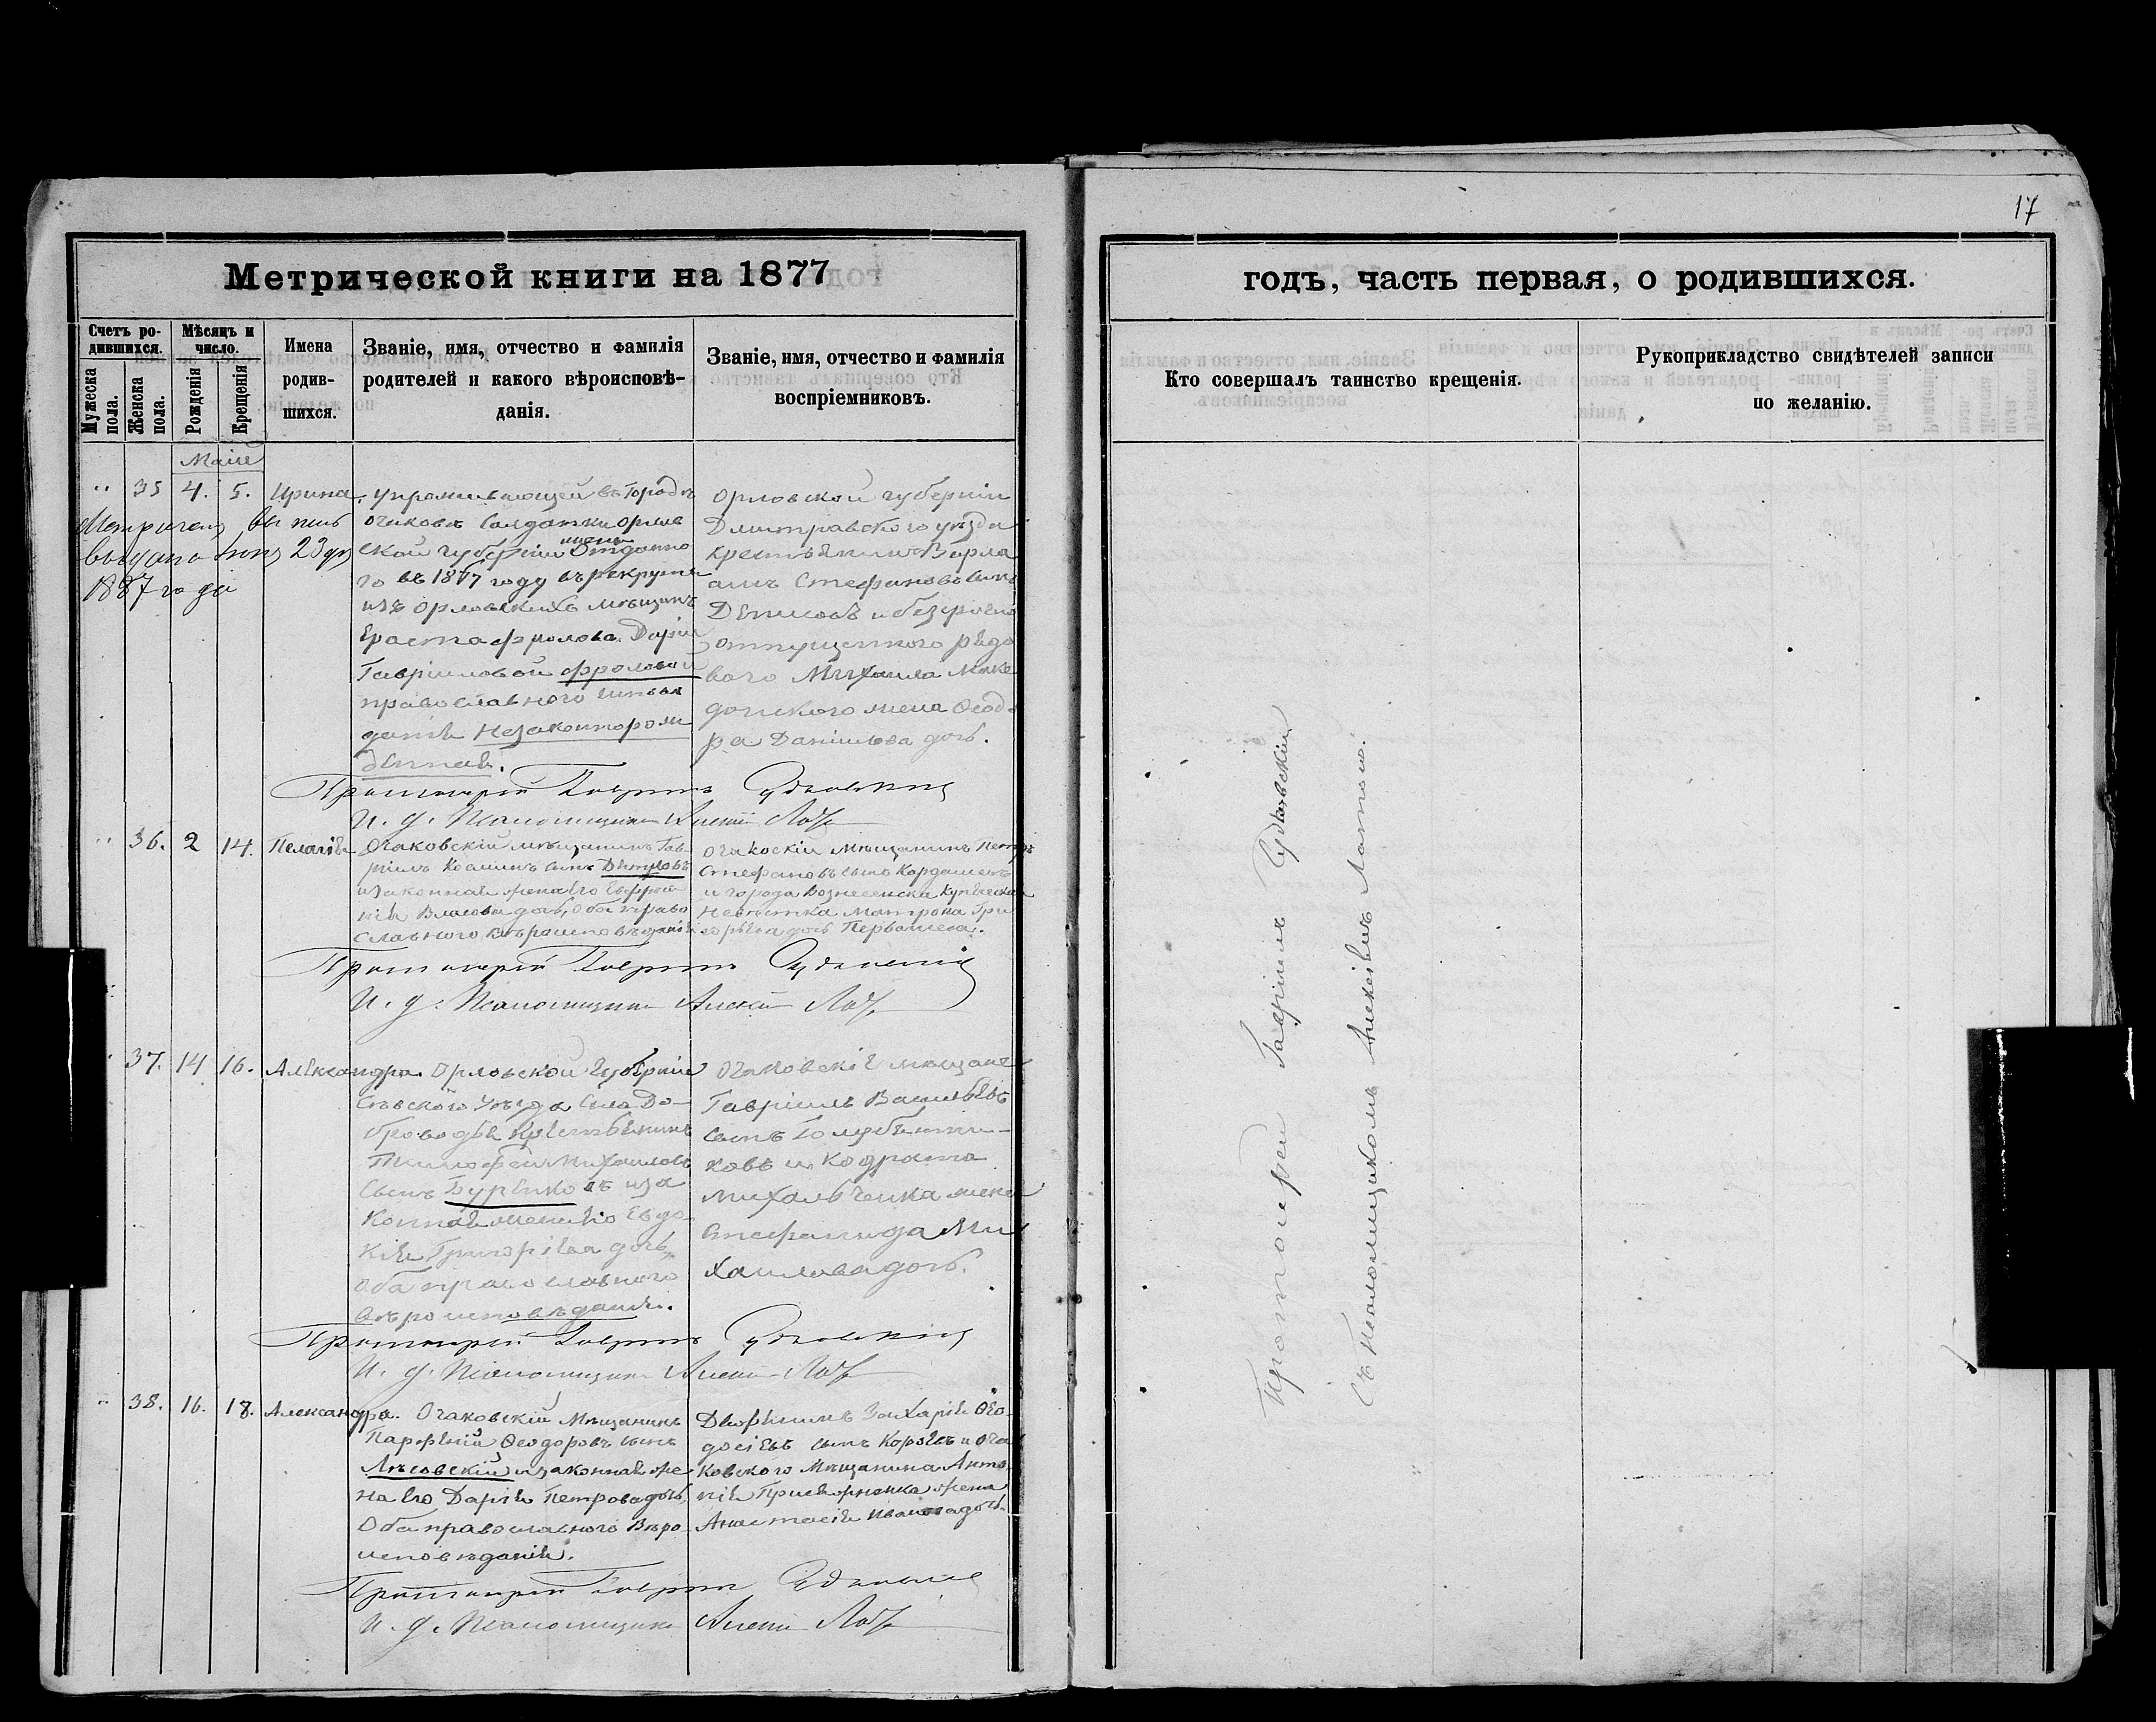 17
Метрической книги на 1877
годъ, часть первая, о родившихся.
Счетъ ро-
дившихся.
Мѣсяцъ и
число.
Мужеска
пола.
Женска
пола.
Рожденія
Крещенія
Имена
родив-
шихся.
Званіе, имя, отчество и фамилія
родителей и какого вѣроисповѣ-
данія.
Званіе, имя, отчество и фамилія
воспріемниковъ.
Кто совершалъ таинство крещенія.
Рукоприкладство свидѣтелей записи
по желанію.
Маій
" 35 4. 5. Ирина.
выдано 23
1887 года
въ Городѣ
Очаковѣ Солдатки Орлов
ской губерніи жены Отданно
го въ 18 году въ рекруты
изъ Орловскихъ мѣщанъ
Ераста Фролова Даріи
Гавріиловой Фроловой
православного
данія Незаконнорож
денная.
Орловской губерніи
Дмитравского уѣзда
крестьянинъ Варла
амъ Стефановъ сынъ
Денисовъ и безсрочно
отпущенного рядо
вого Михаила Маке
донского жена Ѳеодо
ра Даніилова дочь.
Протоіерей Гавріилъ Судковскій
И. д. Псаломщика Алексій
" 36. 2 14. Пелагія
Очаковскій мѣщанинъ Гав-
ріилъ Косминъ сынъ
и законная жена его Евфроси-
нія Власова дочь, оба право
славного вѣроисповѣданія
Очакоскій Мѣщанинъ Петръ
Стефановъ сынъ Кардашевъ
и города Вознесенска Купеческая
Невѣстка Матрона Гри
горьева дочь
Протоіерей Гавріилъ Судковскій
И. д. Псаломщика Алексій
37. 14 16. Александра.
Орловской Губерніи
Сѣвского Уѣзда Села До-
броводья Крестьянинъ
Тимофей Михаиловъ
сынъ Буренковъ и за
конная жена его Евдо
кія Григоріева дочь,
оба православного
вѣроисповѣданія.
Очаковскіе мѣщане
Гавріилъ Васильевъ
сынъ Голубятни-
ковъ и Кодрата
Михальченка жена
Стефанида Ми
хаилова дочь.
Протоіерей Гавріилъ Судковскій
И. д. Псаломщика Алексій
" 38. 16. 18. Александра.
Очаковскій Мѣщанинъ
Парфеній Ѳеодоровъ сынъ
Лѣсовскій и законная же
на его Дарія Петрова дочь,
Оба православного Вѣро-
исповѣданія.
Дворянинъ Захарія Ѳео-
досіевъ сынъ Корзевъ и Оча
ковского Мѣщанина Анто-
нія жена
Анастасія Иванова дочь.
Протоіерей Гавріилъ Судковскій
И. д. Псаломщика Алексій
Протоіерей Гавріилъ Судковскій
Съ Псаломщикомъ Алексіемъ